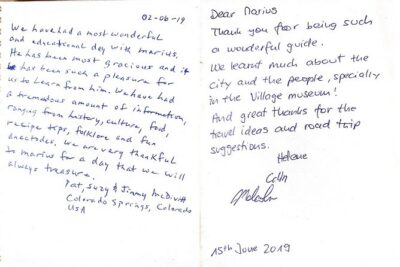 02-06-19
We have had a most wonderful
and educational day with marius.
He has been most gracious and it
has been such a pleasure for
us to learn from him. We have had
a tremedous amount of information,
ranging from history, culture, food,
recipe tips, folklore and fun
anectodes. We are very thankful
to marius for a day that we will
always treasure.
Pat, Suzy & Jimmy McDivitt
Colorado Springs, Colorado
USA
Dear Marius
Thank you foor being such
a wonderful guide.
We learnt much about the
city and the people, specially
in the Village museum!
And great thanks for the
travel ideas and road trip
suggestions.
Helene
Colin
Malcolm
15th June 2019